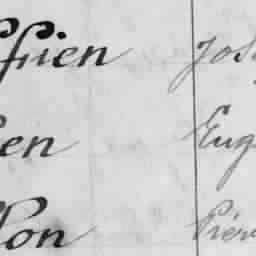 ffien Jos
en Eug
lon Pier